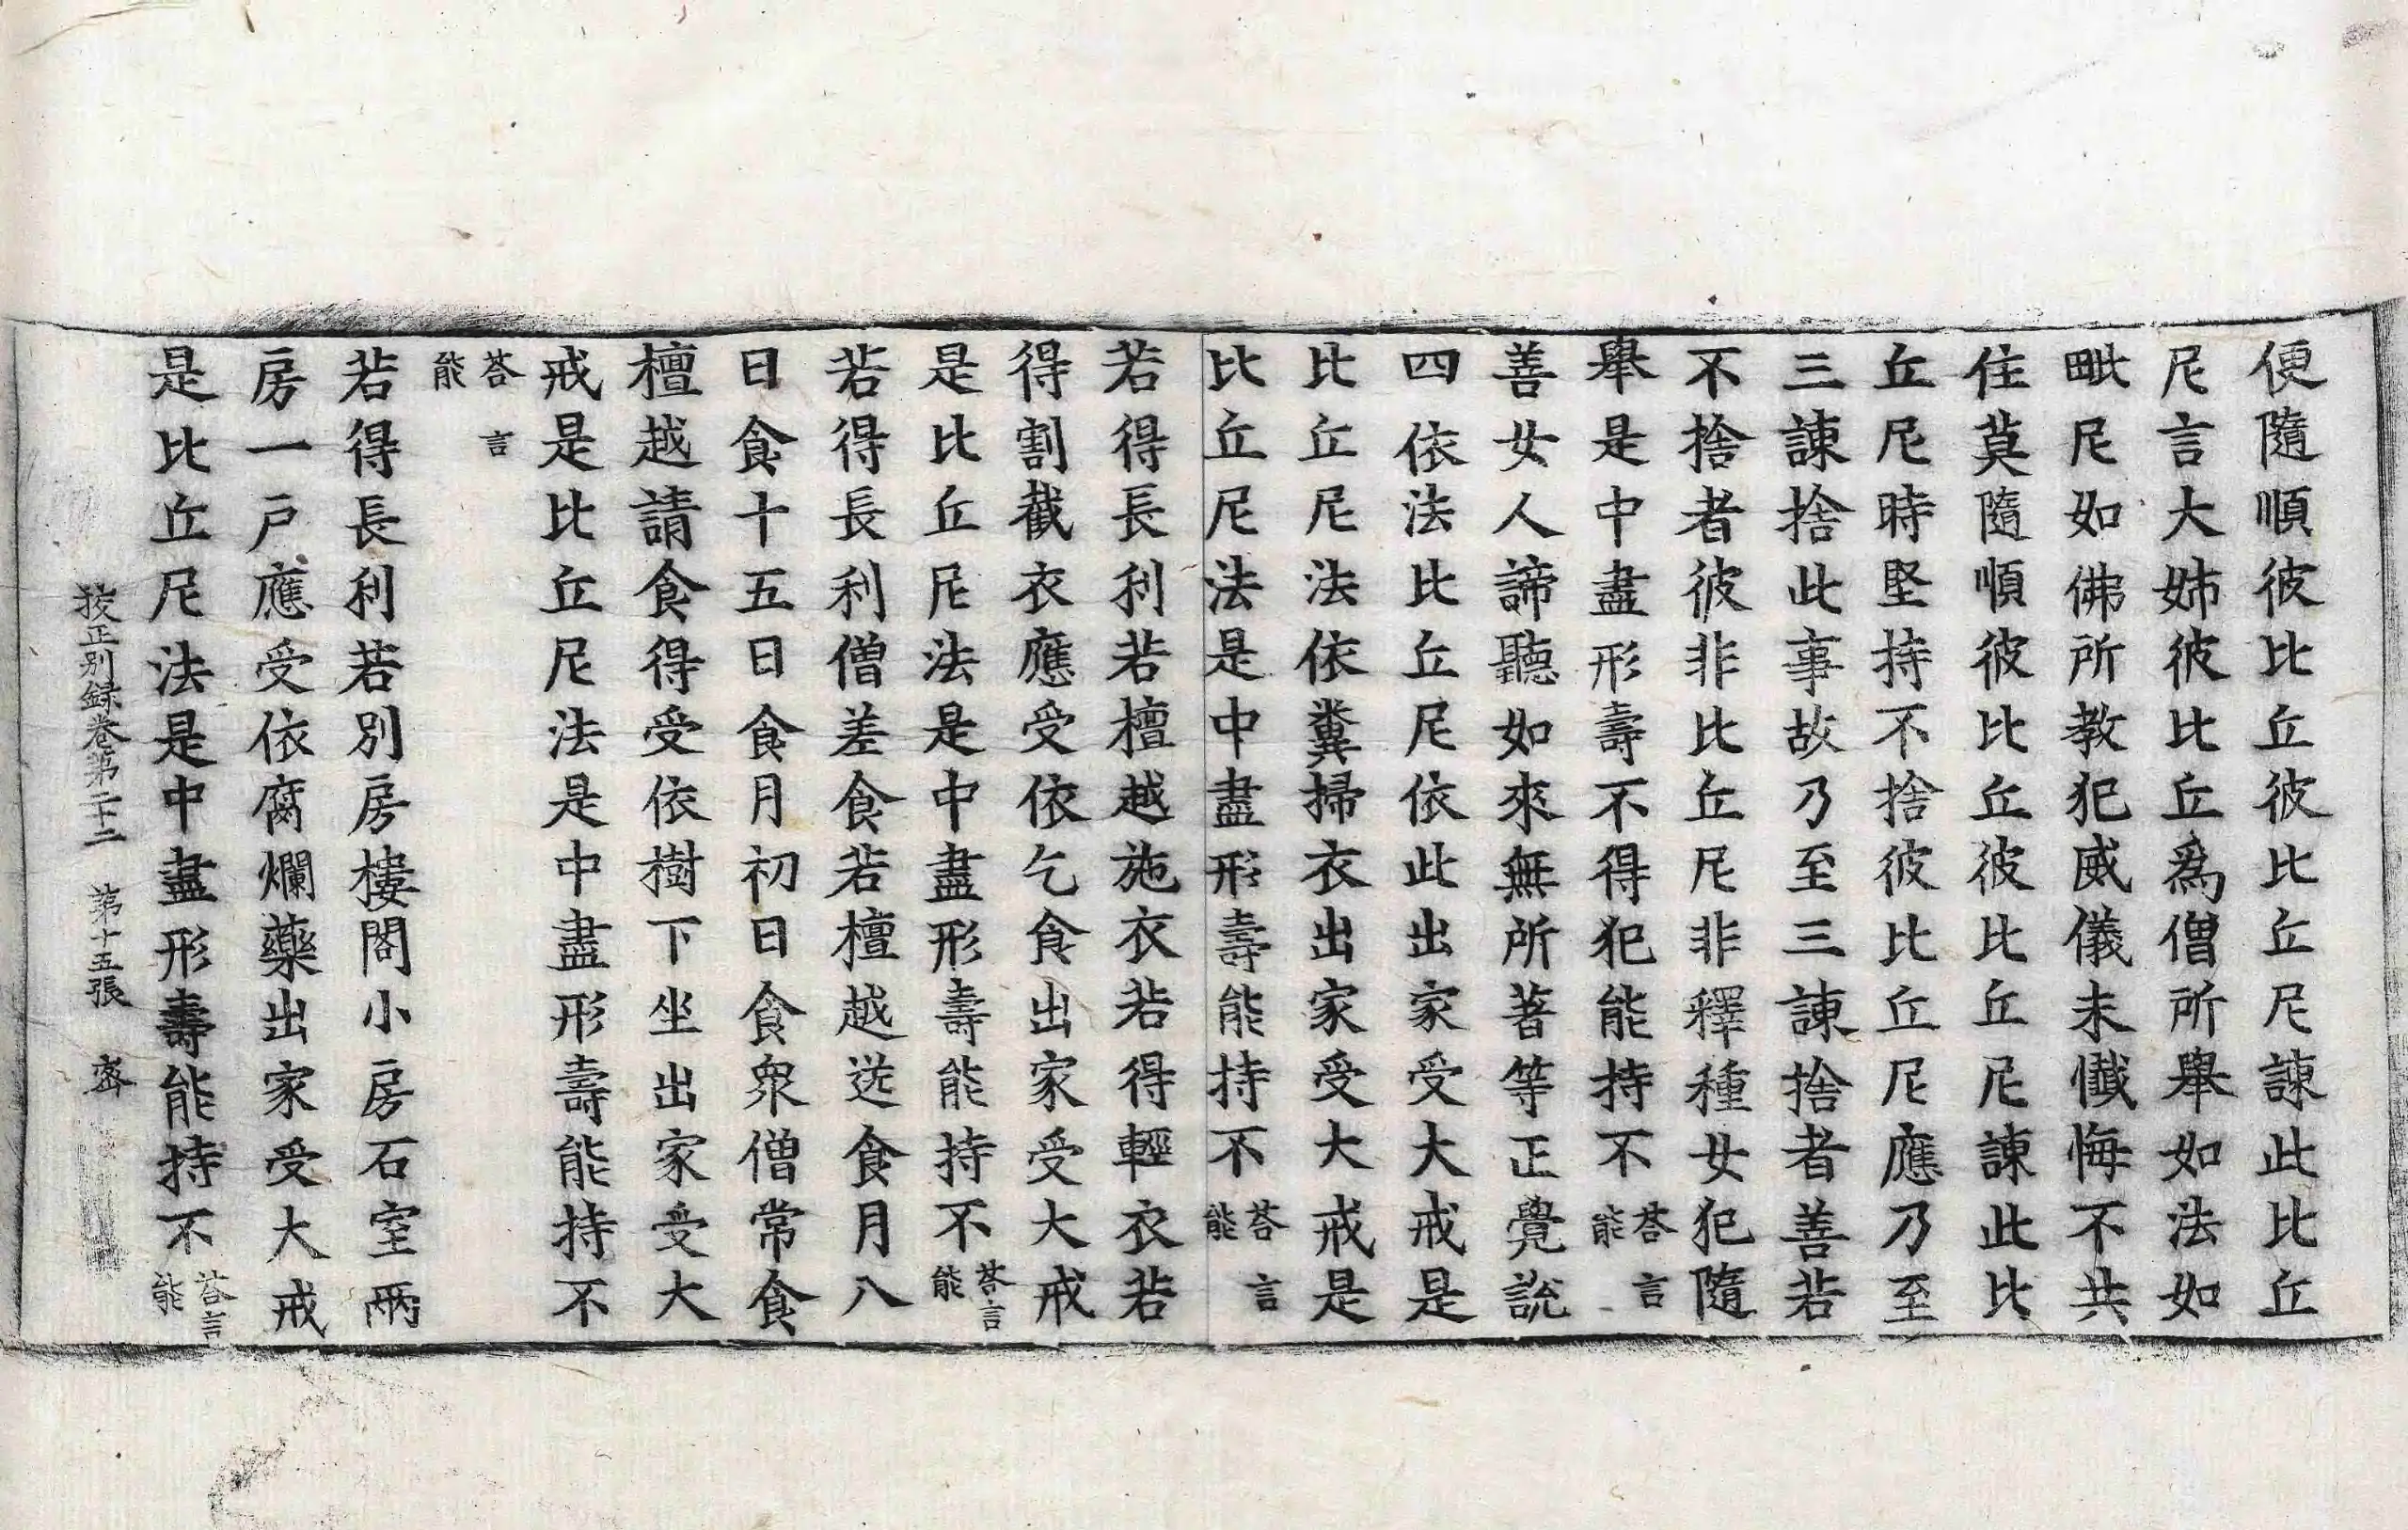 便隨順彼比丘彼比丘尼諫此比丘
尼言大姊彼比丘爲僧所舉如法如
毗尼如佛所教犯威儀未懺悔不共
住莫隨順彼比丘彼比丘尼諫此比
丘尼時堅持不捨彼比丘尼應乃至
三諫捨此事故乃至三諫捨者善若
不捨者彼非比丘尼非釋種女犯隨
舉是中盡形壽不得犯能持不荅言能
善女人諦聽如來無所著等正覺說
四依法比丘尼依此出家受大戒是
比丘尼法依糞掃衣出家受大戒是
比丘尼法是中盡形壽能持不荅言能
若得長利若檀越施衣若得輕衣若
得割截衣應受依乞食出家受大戒
是比丘尼法是中盡形壽能持不荅言能
若得長利僧差食若檀越送食月八
日食十五日食月初日食衆僧常食
檀越請食得受依樹下坐出家受大
戒是比丘尼法是中盡形壽能持不
荅言能
若得長利若別房樓閣小房石室兩
房一戶應受依腐爛藥出家受大戒
是比丘尼法是中盡形壽能持不荅言能
挍正別録卷第二十二 第十五張